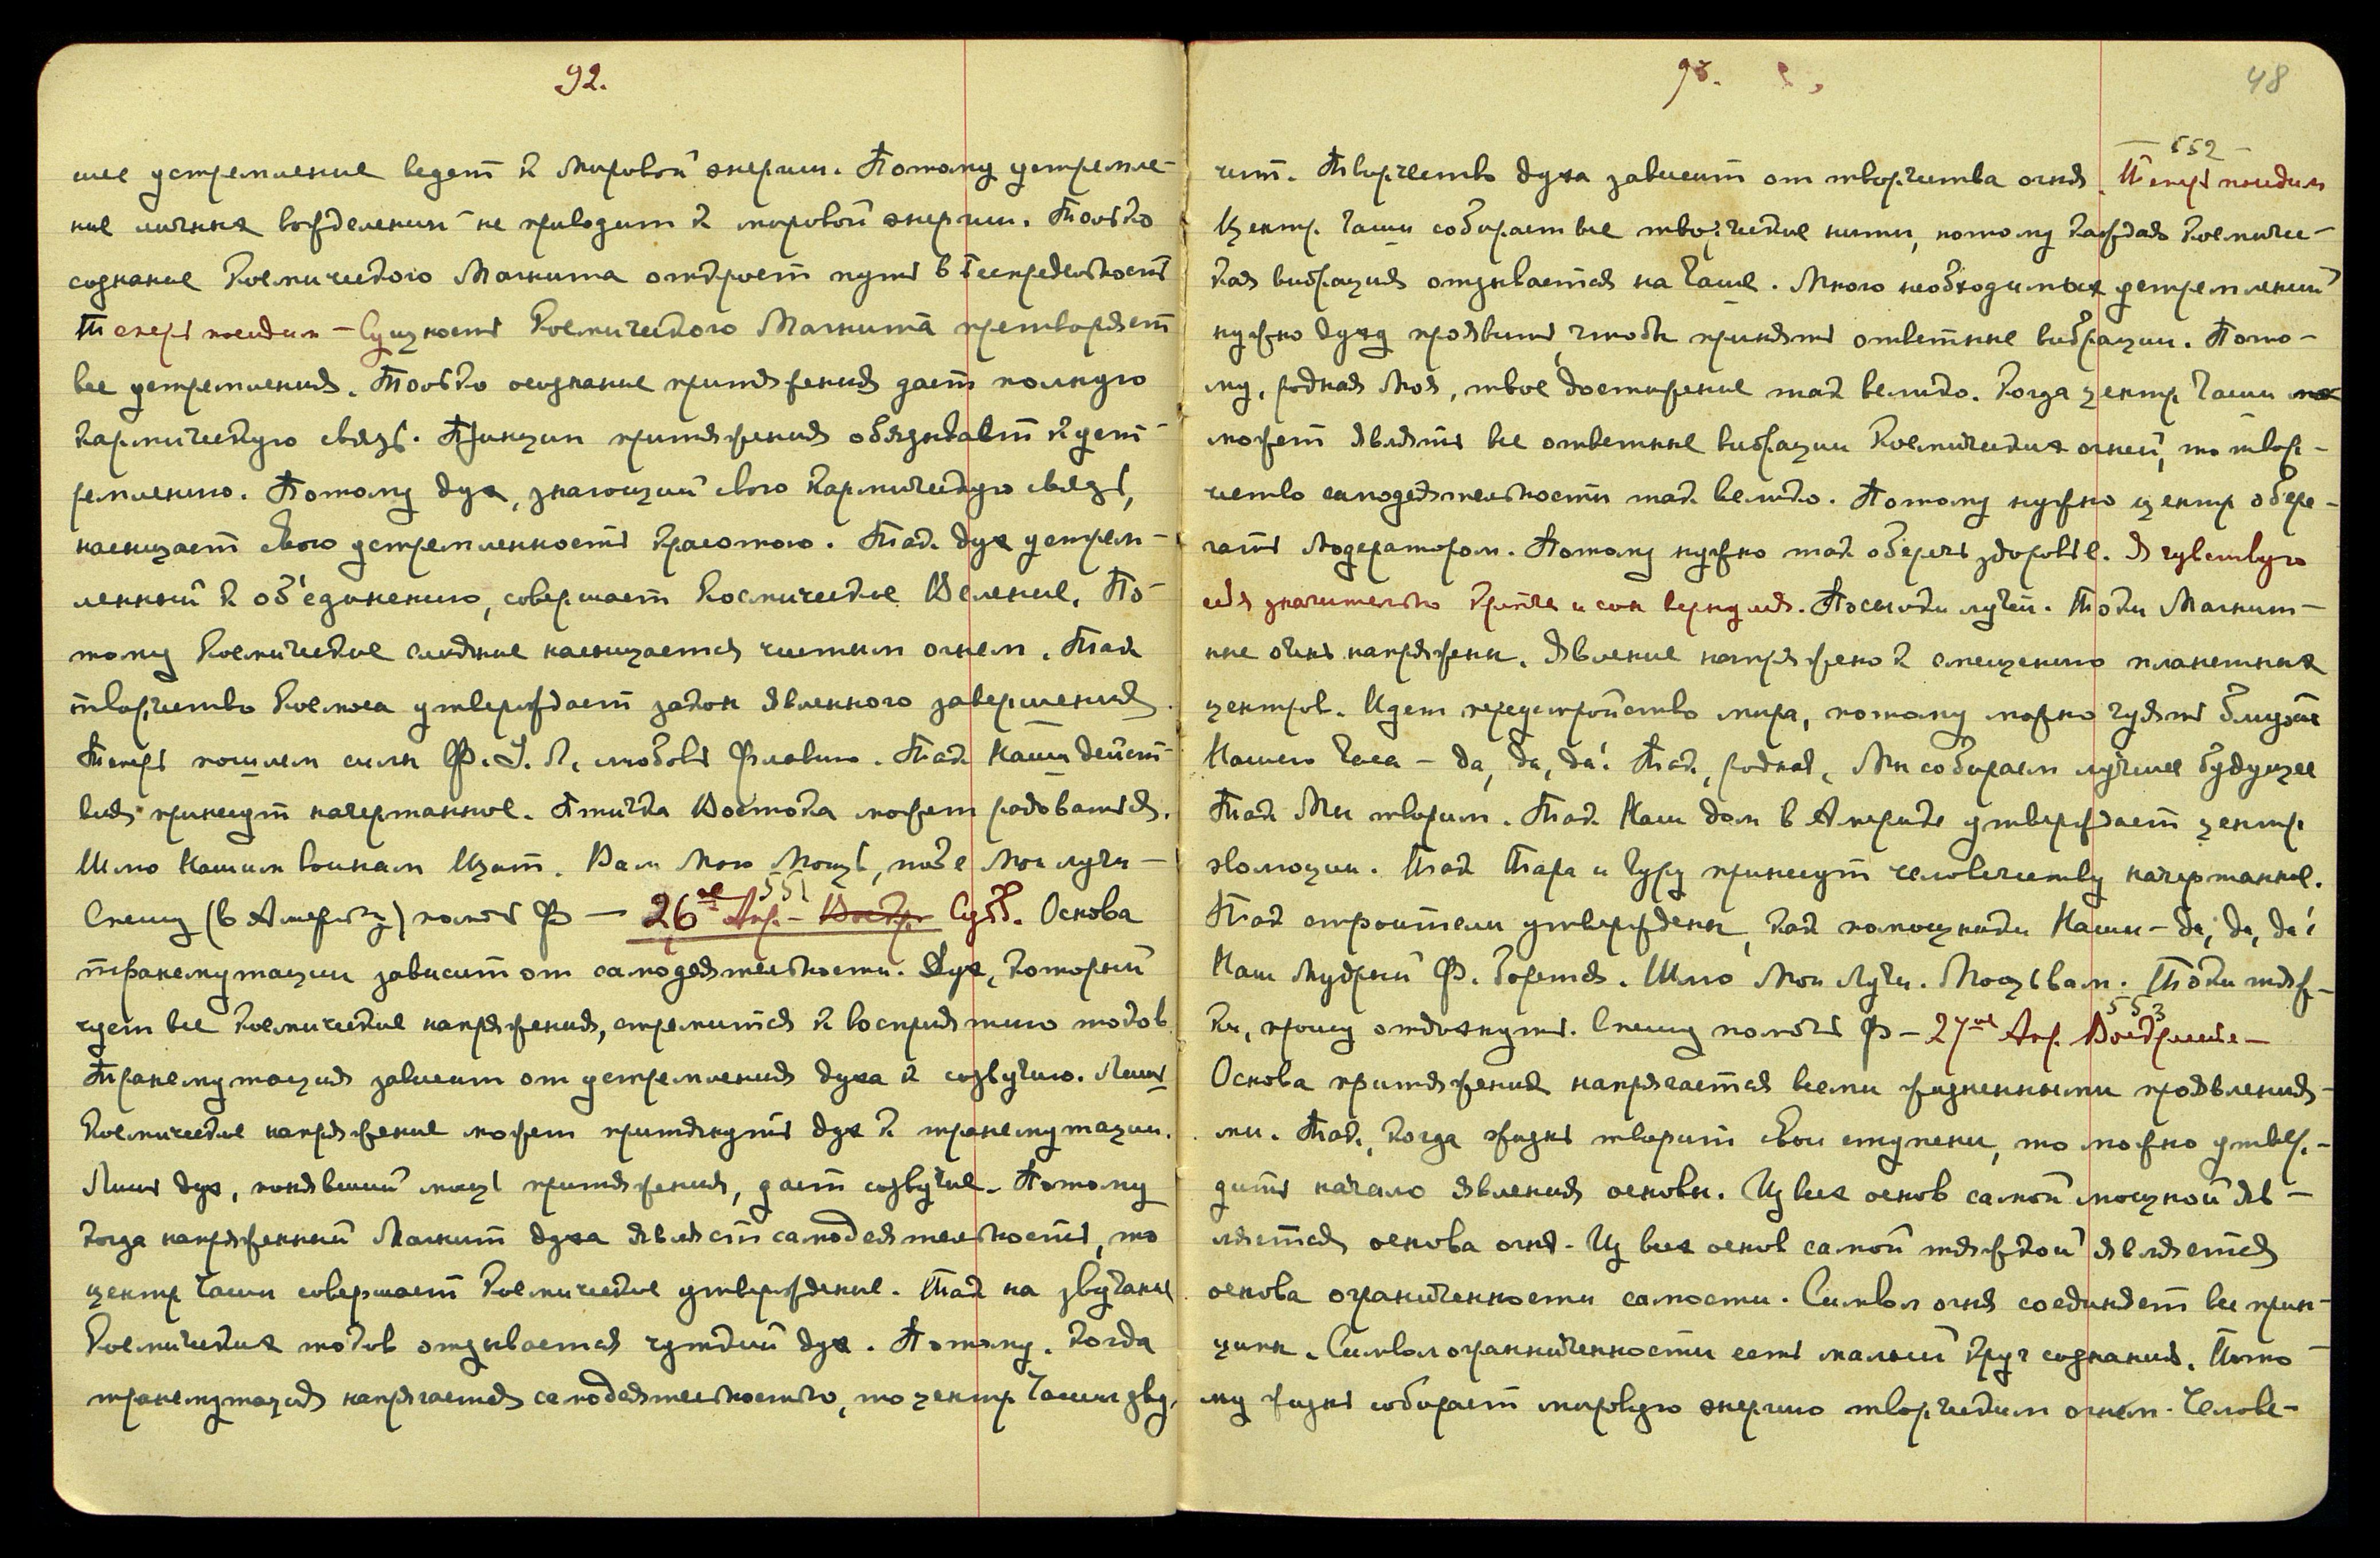 92.
шее устремление ведет к Мировой энергии. Потому устремле-
ние личных вожделений не приводит к мировой энергии. Только
сознание Космического Магнита откроет путь в Беспредельность
Теперь последим – Сущность Космического Магнита претворяет
все устремления. Только осознание притяжения дает полную
кармическую связь. Принцип притяжения обязывает к уст-
ремлению. Потому дух, знающий свою кармическую связь,
насыщает свою устремленность красотою. Так дух устрем-
ленный к об'единению, совершает Космическое Веление. По-
тому Космическое слияние насыщается чистым огнем. Так
творчество Космоса утверждает закон явленного завершения.
Теперь пошлем силы Ф. Л. любовь Флавию. Так Наши дейст-
вия принесут начертанное. Птичка Востока может радоваться.
Шлю Нашим воинам Щит. Вам Мою Мощь, тебе Мои лучи –
551
Спешу (в Америку) помочь Ф – 26ое Апр. – Воскр. Субб. Основа
трансмутации зависит от самодеятельности. Дух, который
чует все Космические напряжения, стремится к восприятию токов.
Трансмутация зависит от устремления духа к созвучию. Лишь
Космическое напряжение может притянуть дух к трансмутации.
Лишь дух, понявший мощь притяжения, дает созвучие. Потому
когда напряженный Магнит духа являет самодеятельность, то
центр Чаши совершает Космическое утверждение. Так на звучание
Космических токов отзывается чуткий дух. Потому, когда
трансмутация напрягается самодеятельностью, то центр Чаши зву-
93.
48
552
чит. Творчество духа зависит от творчества огня. Теперь последим
Центр Чаши собирает все творческие нити, потому каждая Космичес-
кая вибрация отзывается на Чаше. Много необходимых устремлений
нужно духу проявить, чтобы принять ответные вибрации. Пото-
му, родная Моя, твое достижение так велико. Когда центр Чаши
может являть все ответные вибрации Космических огней, то твор-
чество самодеятельности так велико. Потому нужно центр обере-
гать Модератором. Потому нужно так беречь здоровье. Я чувствую
себя значительно крепче и сон вернулся. Посылки лучей. Токи Магнит-
ные очень напряжены. Явление напряжено к смещению планетных
центров. Идет переустройство мира, потому можно чуять близость
Нашего Часа – да, да, да! Так, родная, Мы собираем лучшее будущее
Так Мы творим. Так Наш дом в Америке утверждает центр
эволюции. Так Тара и Гуру принесут человечеству начертанное.
Так строители утверждены, как помощники Наши – да, да, да!
Наш Мудрый Ф. борется. Шлю Мои Лучи. Мощь вам. Токи тяж-
553
ки, прошу отдохнуть. Спешу помочь Ф – 27ое Апр. Воскресенье –
Основа притяжения напрягается всеми жизненными проявления-
ми. Так, когда жизнь творит свои ступени, то можно утвер-
дить начало явления основы. Из всех основ самой мощной яв-
ляется основа огня. Из всех основ самой тяжкой является
основа ограниченности самости. Символ огня соединяет все прин-
ципы. Символ ограниченности есть малый круг сознания. Пото-
му жизнь собирает мировую энергию творческим огнем. Челове-